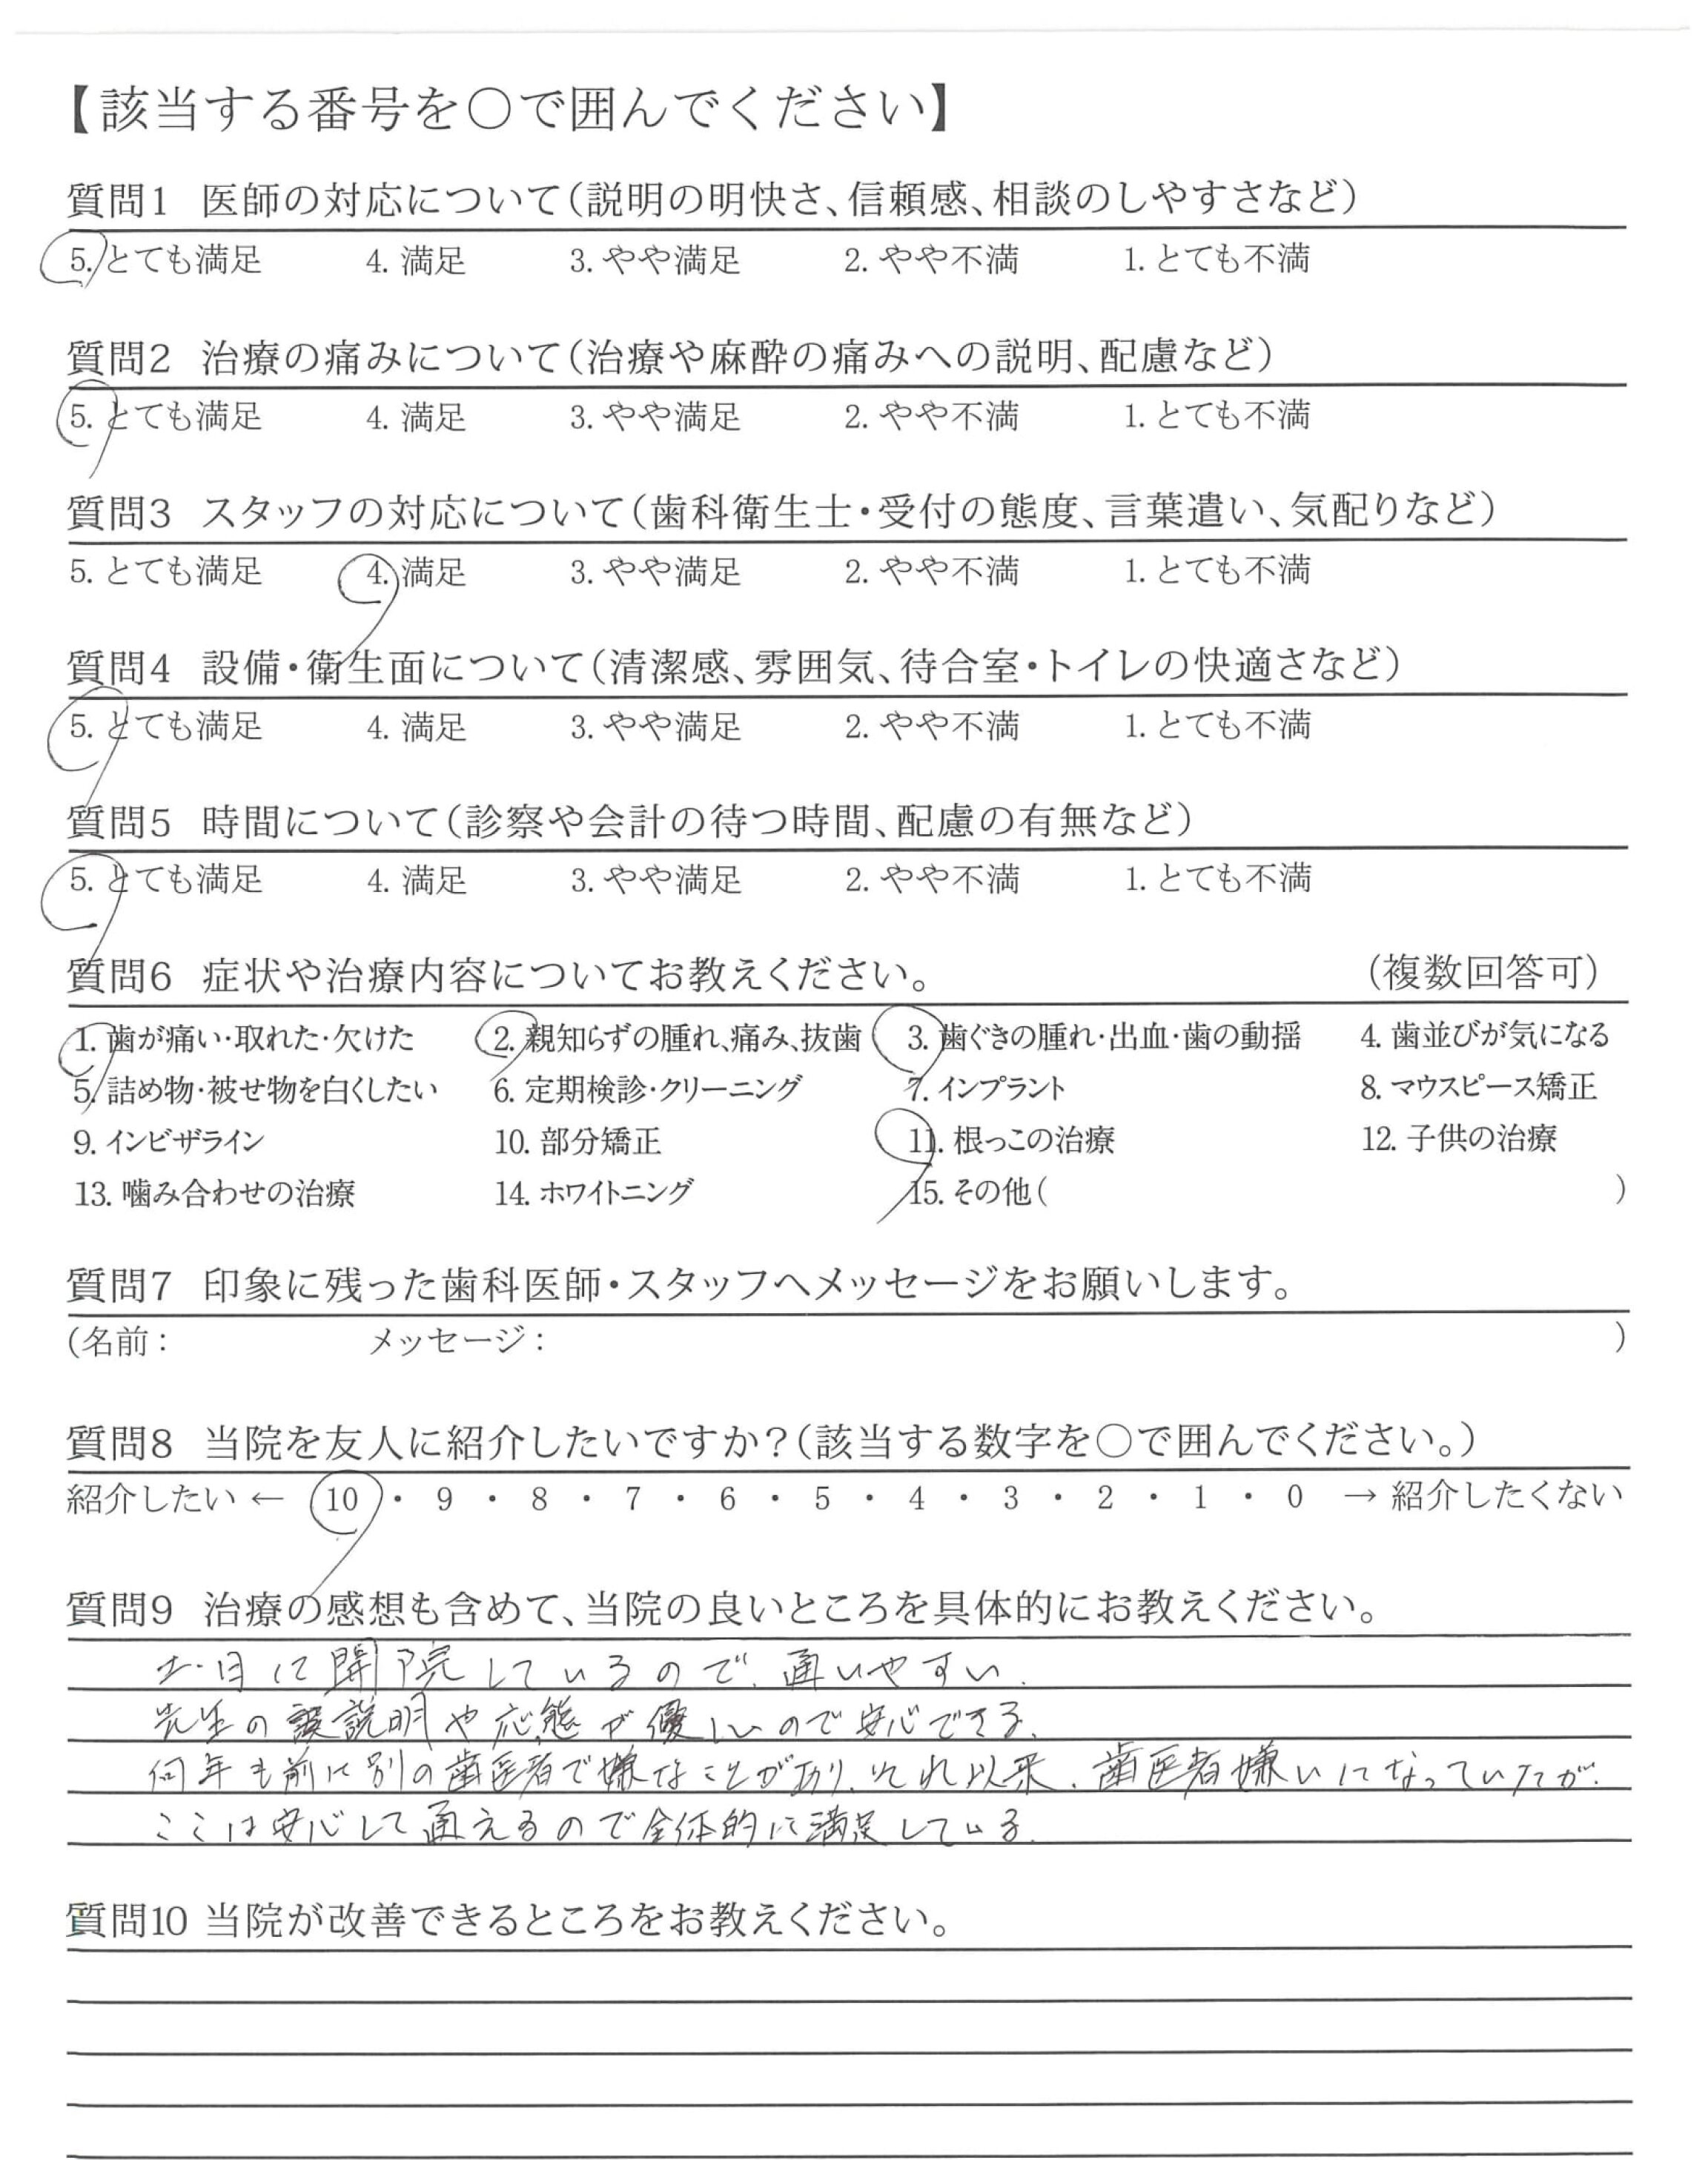 【該当する番号を○で囲んでください】
質問1 医師の対応について(説明の明快さ、信頼感、相談のしやすさなど)
5. とても満足 4. 満足 3. やや満足 2. やや不満 1. とても不満
質問2 治療の痛みについて(治療や麻酔の痛みへの説明、配慮など)
5. とても満足 4. 満足 3. やや満足 2. やや不満 1. とても不満
質問3 スタッフの対応について(歯科衛生士・受付の態度、言葉遣い、気配りなど)
5. とても満足 4. 満足 3. やや満足 2. やや不満 1. とても不満
質問4 設備・衛生面について(清潔感、雰囲気、待合室・トイレの快適さなど)
5. とても満足 4. 満足 3. やや満足 2. やや不満 1. とても不満
質問5 時間について(診察や会計の待つ時間、配慮の有無など)
5. とても満足 4. 満足 3. やや満足 2. やや不満 1. とても不満
質問6 症状や治療内容についてお教えください。 (複数回答可)
1. 歯が痛い・取れた・欠けた 2. 親知らずの腫れ、痛み、抜歯 3. 歯ぐきの腫れ・出血・歯の動揺 4. 歯並びが気になる
5. 詰め物・被せ物を白くしたい 6. 定期検診・クリーニング 7. インプラント 8. マウスピース矯正
9. インビザライン 10. 部分矯正 11. 根っこの治療 12. 子供の治療
13. 噛み合わせの治療 14. ホワイトニング 15. その他( )
質問7 印象に残った歯科医師・スタッフへメッセージをお願いします。
(名前: メッセージ: )
質問8 当院を友人に紹介したいですか?(該当する数字を○で囲んでください。)
紹介したい ← 10 ・ 9 ・ 8 ・ 7 ・ 6 ・ 5 ・ 4 ・ 3 ・ 2 ・ 1 ・ 0 → 紹介したくない
質問9 治療の感想も含めて、当院の良いところを具体的にお教えください。
土・日に開院しているので、通いやすい.
先生の説明や応態が優しいので安心できる.
何年も前に別の歯医者で嫌なことがあり、それ以来、歯医者嫌いになっていたが、
ここは安心して通えるので全体的に満足している.
質問10 当院が改善できるところをお教えください。